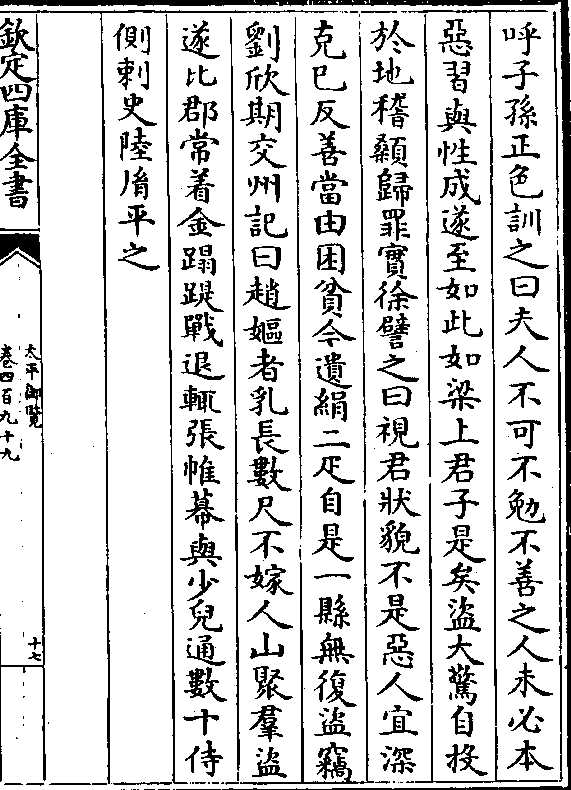 呼子孫正色訓之曰夫人不可不勉不善之人未必本
惡習與性成遂至如此如梁上君子是矣盜大驚自投
於地稽顙歸罪實徐譬之曰視君狀貌不是惡人宜深
克已反善當由困貧今遺絹二疋自是一縣無復盜竊
劉欣期交州記曰趙嫗者乳長數尺不嫁人山聚羣盜
遂比郡常着金蹋踶戰退輒張帷幕與少兒通數十侍
側刺史陸胤平之
欽定四庫全書
太平御覽
卷四百九十九
十七